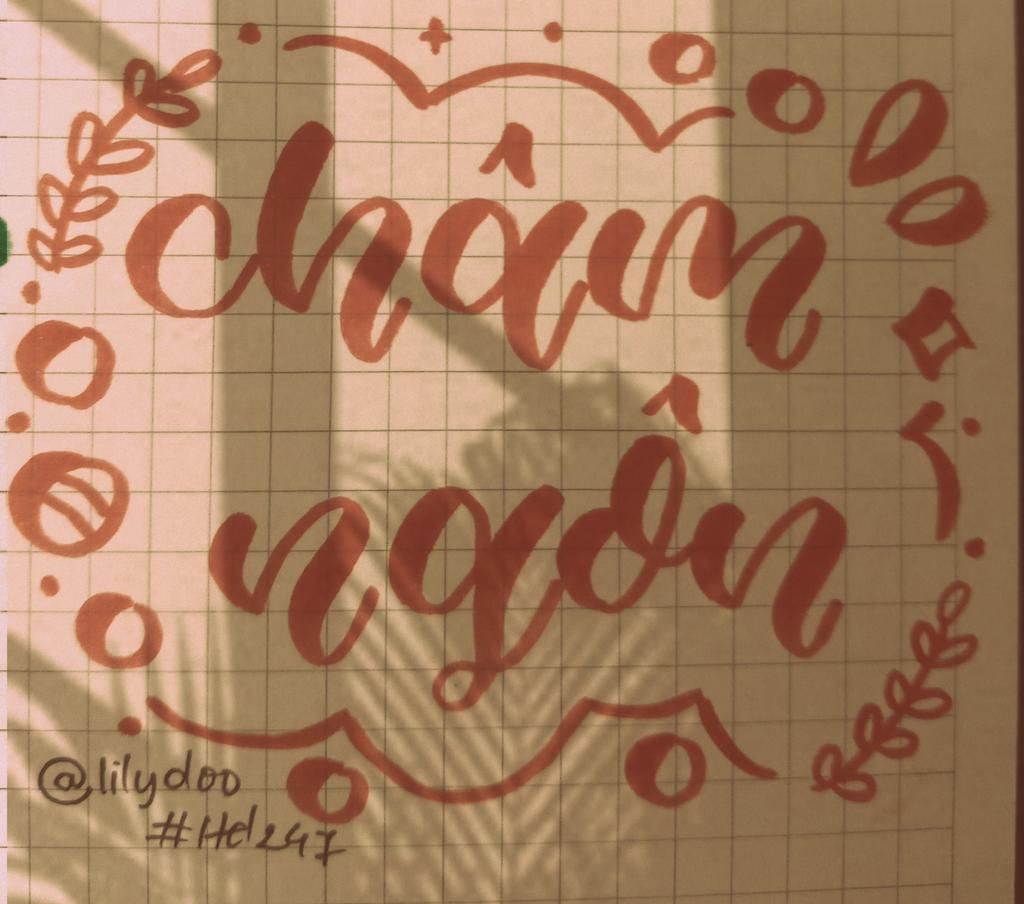 châm
ngôn
@lilydoo
#Hd247